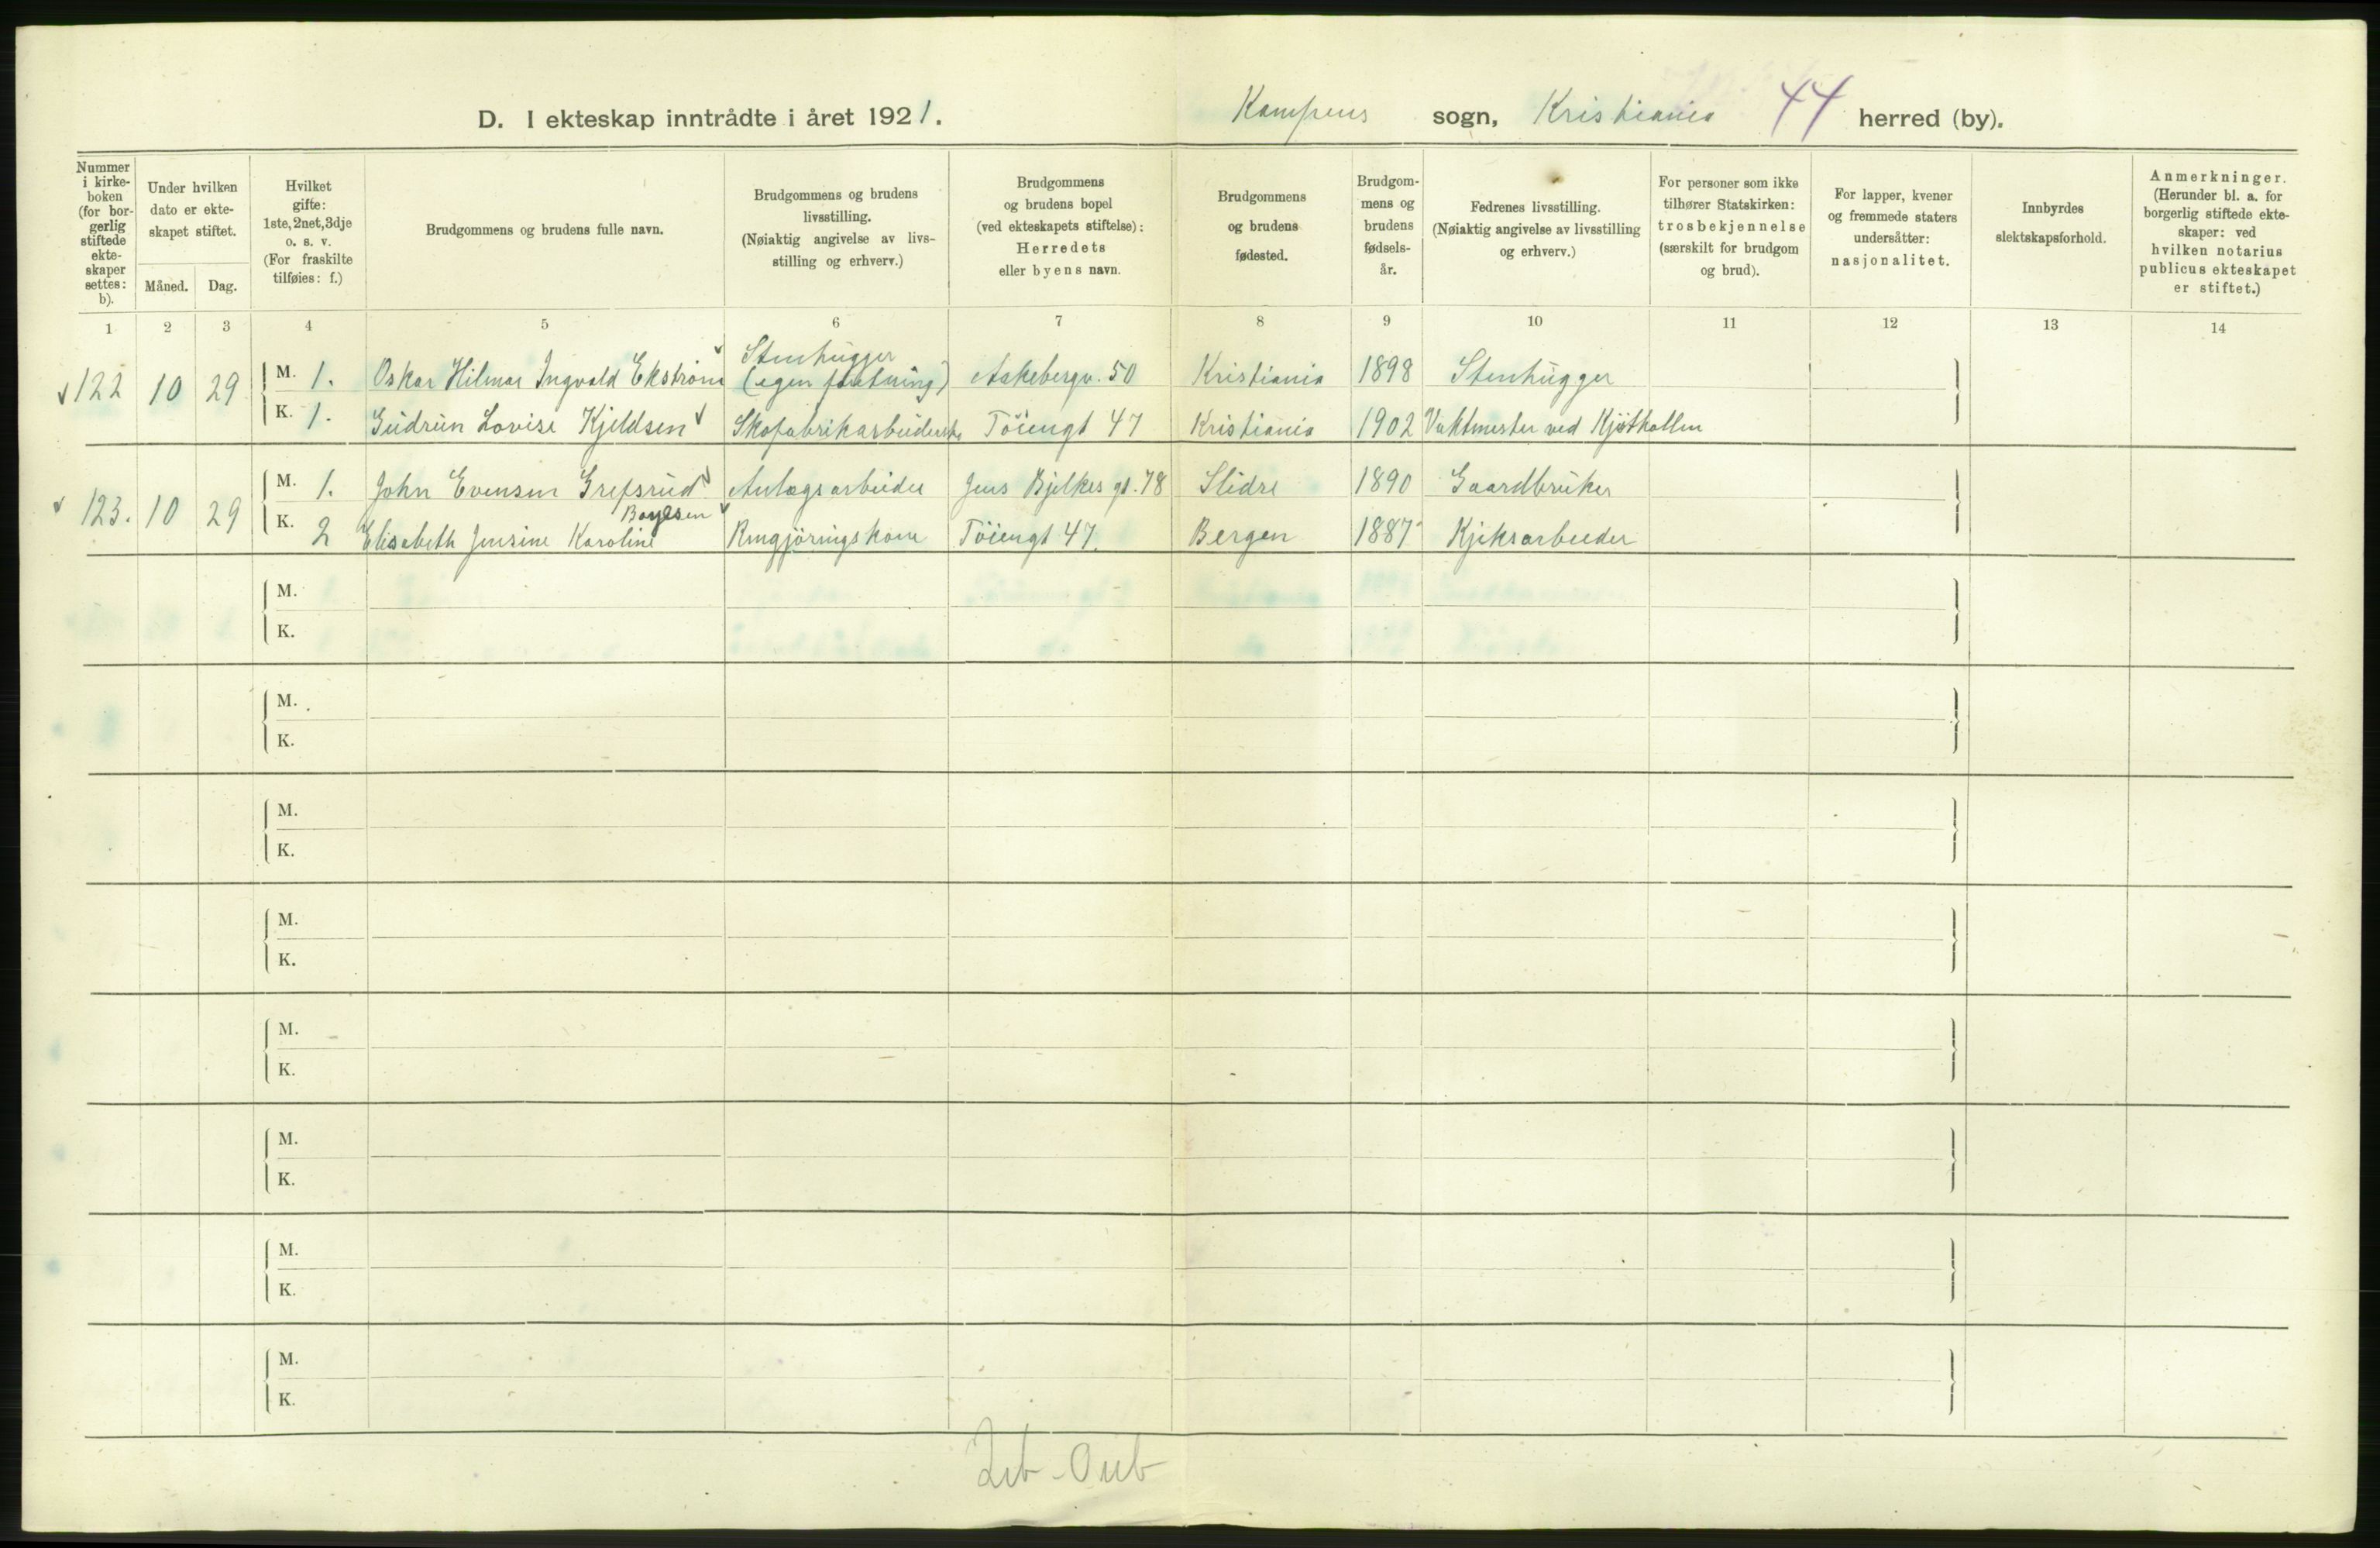 D. I ekteskap inntrådte i året 1921. Kampens sogn, Kristiania 44 herred (by).
Nummer i kirke- boken (for bor- gerlig stiftede ekte- skaper settes: b).
Under hvilken dato er ekte- skapet stiftet.
Måned. Dag.
Hvilket gifte: 1ste, 2net, 3dje o. s. v. (For fraskilte tilføies: f.)
Brudgommens og brudens fulle navn.
Brudgommens og brudens livsstilling. (Nøiaktig angivelse av livs- stilling og erhverv.)
Brudgommens og brudens bopel (ved ekteskapets stiftelse): Herredets eller byens navn.
Brudgommens og brudens fødested.
Brudgom- mens og brudens fødsels- år.
Fedrenes livsstilling. (Nøiaktig angivelse av livsstilling og erhverv.)
For personer som ikke tilhører Statskirken: trosbekjennelse (særskilt for brudgom og brud).
For lapper, kvener og fremmede staters undersåtter: nasjonalitet.
Innbyrdes slektskapsforhold.
Anmerkninger. (Herunder bl. a. for borgerlig stiftede ekte- skaper: ved hvilken notarius publicus ekteskapet er stiftet.)
1 2 3 4 5 6 7 8 9 10 11 12 13 14
122 10 29
M. 1. Oskar Hilmar Ingvald Ekström Stenhugger (egen forretning) Aakebergv. 50 Kristiania 1898 Stenhugger
K. 1. Gudrun Lovise Kjeldsen Skofabrikarbeiderske Töiengt 47 Kristiania 1902 Vaktmester ved Kjöthallen
123. 10 29
M. 1. John Evensen Grefsrud Anlægsarbeider Jens Bjelkes gt. 78 Slidre 1890 Gaardbruker
K. 2 Elisabeth Jensine Karoline Boyesen Rengjöringskone Töiengt 47. Bergen 1887 Kjeksarbeider
M.
K.
M.
K.
M.
K.
M.
K.
M.
K.
M.
K.
M.
K.
M.
K.